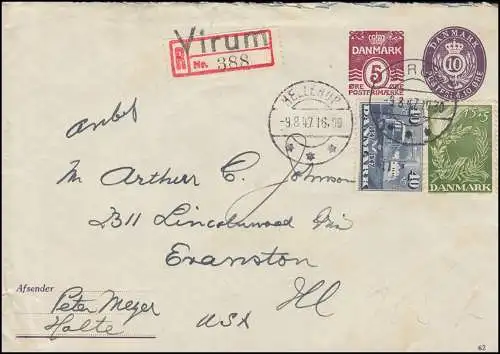 Virum
R No. 388
DANMARK
5
ØRE ØRE
POSTFRIMÆRKE
DANMARK
10
HELLERUP
-9.8.47.18.00
40
DANMARK
40
15+5
DANMARK
anbef.
Mr Arthur C. Johnson
2311 Lincolnwood Drive
Evanston
Ill
USA
Afsender
Peter Meyer
Holte
62